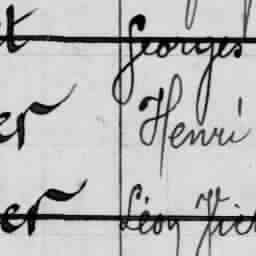 t Georges
er Henri
er Léon Vic